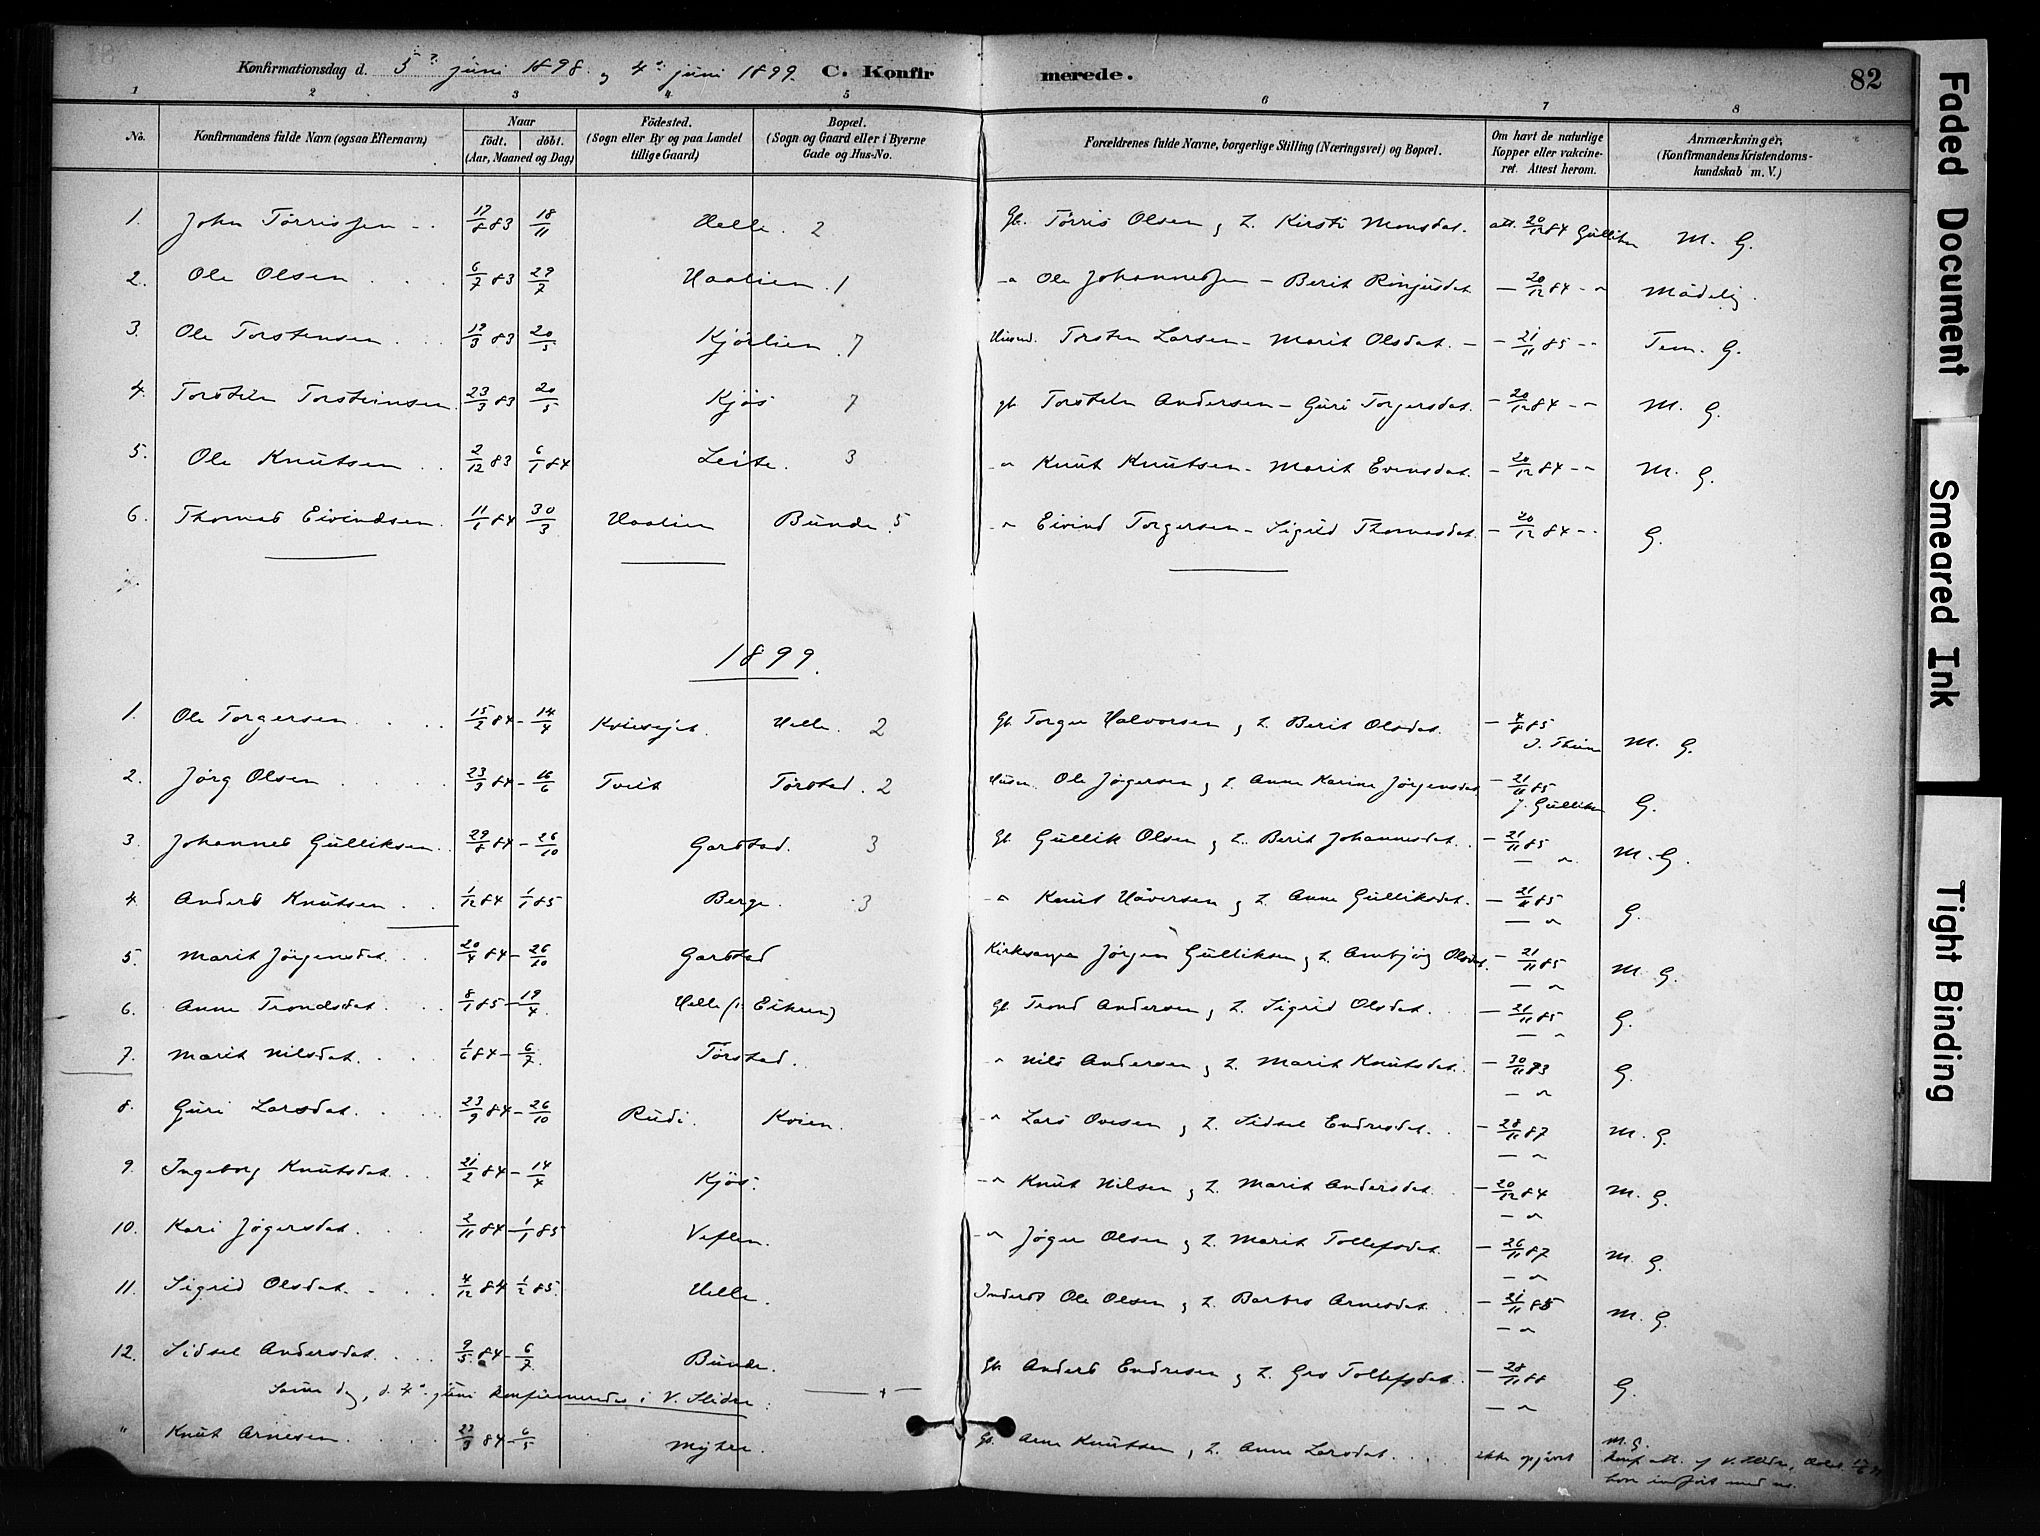 Konfirmationsdag d. 5 juni 1898 og 4 juni 1899. C. Konfir merede. 82
1 2 3 4 5 6 7 8
No. Konfirmandens fulde Navn (ogsaa Efternavn) Naar født. døbt. (Aar, Maaned og Dag) Fødested. (Sogn eller By og paa Landet tillige Gaard) Bopæl. (Sogn og Gaard eller i Byerne Gade og Hus-No. Forældrenes fulde Navne, borgerlige Stilling (Næringsvei) og Bopæl. Om havt de naturlige Kopper eller vakcineret. Attest herom. Anmærkninger, (Konfirmandens Kristendomskundskab m. V.)
1. John Tørrissen 17/8 83 18/11 Helle. 2 Gb. Tørris Olsen og h. Kirsti Monsdat. att. 20/12 84 Gulliksen M. G.
2. Ole Olsen 6/7 83 29/7 Haalien. 1 Ole Johannessen - Berit Ringusdat. 20/12 84 Mådelig.
3. Ole Torstensen 19/3 83 20/5 Kjörlien. 7 Husmd. Torsten Larsen - Marit Olsdat. 21/11 85 Tem. G.
4. Torstein Torsteinsen 23/3 83 20/5 Kjös 7 gb. Torstein Andersen - Guri Torgersdat. 20/12 84 M. G.
5. Ole Knutsen 2/12 83 6/1 84 Leite. 3 Knut Knutsen - Marit Evensdat. 20/12 84 M. G.
6. Thomas Eivindsen. 11/1 84 30/3 Haalien Bunde. 5 Eivind Torgersen - Sigrid Thomasdat. 20/12 84 G.
1899.
1. Ole Torgersen 15/2 84 - 14/4 Helle. 2 Gb. Torger Halvorsen og h. Berit Olsdat. 4/8 85 M. G.
2. Jörg Olsen 23/3 84 - 16/6 Tveit Törstad. 2 Husm. Ole Jögersen og h. Anne Karine Jörgensdat. 21/11 85 J. Gulliksen G.
3. Johannes Gulliksen. 29/8 84 - 26/10 Garstad. 3 Gb. Gullik Olsen og h. Berit Johannesdat. 21/11 85 M. G.
4. Anders Knutsen 1/12 84 1/1 85 Berge. 3 Knut Håversen og h. Anne Gulliksdat. 21/11 85 G.
5. Marit Jörgensdat. 20/4 84 - 26/10 Garstad Kirkesanger Jörgen Gulliksen og h. Ambjörg Olsdat. 21/11 85 M. G.
6. Anne Trondsdat. 8/1 85 - 19/4 Helle (i Eiken) Gb. Trond Andersen og h. Sigrid Olsdat. 21/11 85 G.
7. Marit Nilsdat. 1/6 84 - 6/7. Törstad. Nils Andersen og h. Marit Knutsdat. 30/11 93 G.
8. Guri Larsdat. 23/9 84 - 26/10 Rudi. Kvien. Lars Ovesen og h. Sidsel Endresdat. 28/11 87 M. G.
9. Ingeborg Knutsdat. 21/2 84 - 14/4 Kjös. Knut Nilsen og h. Marit Andersdat. 20/12 84 M. G.
10. Kari Jögersdat. 2/11 84 - 1/1 85 Veflen. Jöger Olsen og h. Marit Tollefsdat. 26/11 87 M. G.
11. Sigrid Olsdat. 4/12 84 1/2 85. Helle. Inderst Ole Olsen og h. Barbro Arnesdat. 21/11 85 M. G.
12. Sidsel Andersdat. 9/5 84 - 6/7 Bunde. Gb. Anders Endresen og h. Gro Tollefsdat. 28/11 88 G.
Samme dag, d. 4 juni konfirmeredes i V. Slidre:
" Knut Arnesen 23/3 84 - 6/5 Myhre. Gb. Arne Knutsen og h. Anne Larsdat. ikke opgivet M. G.
konf. att. af V. Slidre, dat.
indfört med no.
Faded Document
Smeared Ink
Tight Binding